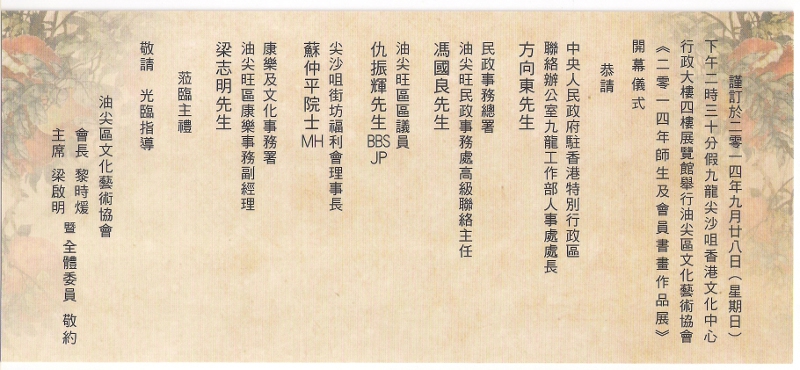 謹訂於二零一四年九月廿八日（星期日）
下午二時三十分假九龍尖沙咀香港文化中心
行政大樓四樓展覽館舉行油尖區文化藝術協會
《二零一四年師生及會員書畫作品展》
開幕儀式
恭請
中央人民政府駐香港特別行政區
聯絡辦公室九龍工作部人事處處長
方向東先生
民政事務總署
油尖旺民政事務處高級聯絡主任
馮國良先生
油尖旺區區議員
仇振輝先生BBS JP
尖沙咀街坊福利會理事長
蘇仲平院士MH
康樂及文化事務署
油尖旺區康樂事務副經理
梁志明先生
蒞臨主禮
敬請 光臨指導
油尖區文化藝術協會
會長 黎時煖
主席 梁啟明
暨 全體委員 敬約